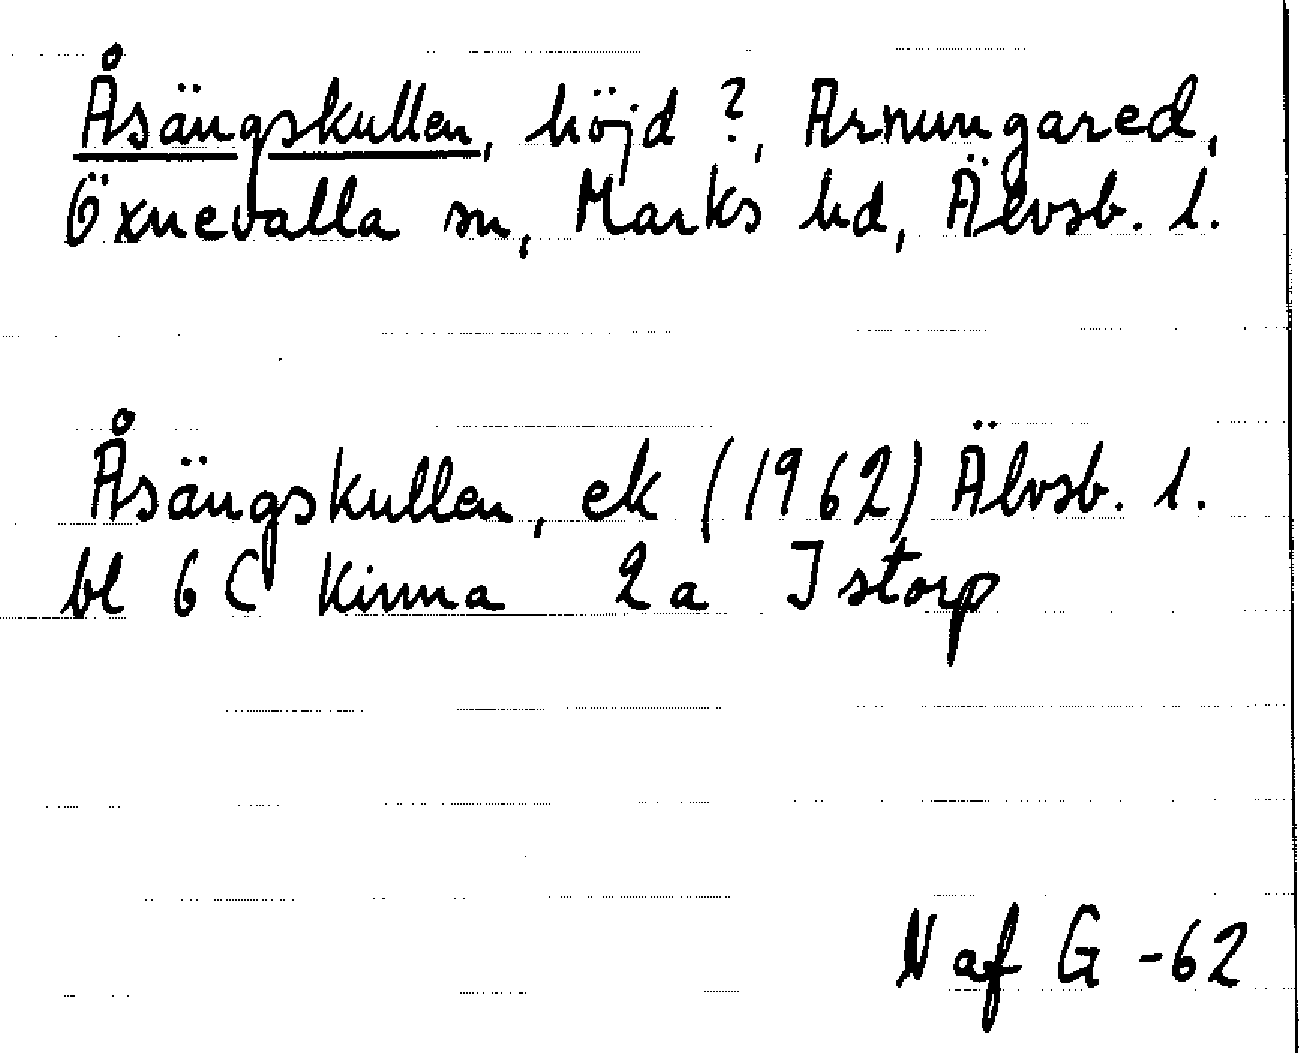 Åsängskullen, höjd ?, Arnungared,
Öxnevalla sn, Marks hd, Älvsb. l.
Åsängskullen, ek (1962) Älvsb. l.
bl 6 C Kinna 2 a Istorp
N af G -62